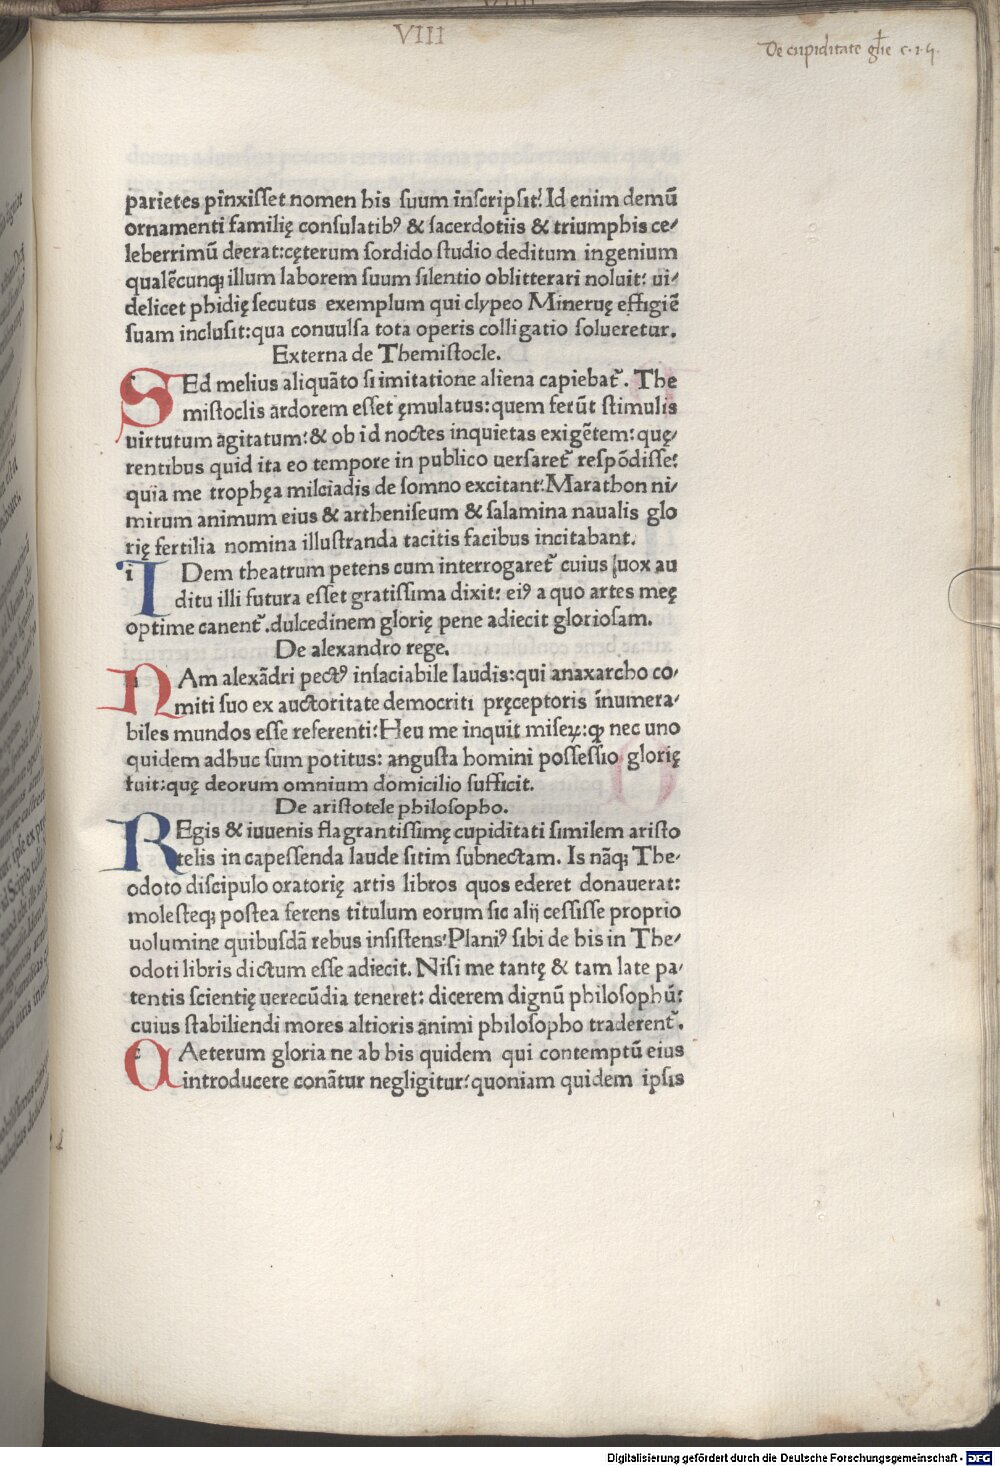 VIII
De cupiditate gl̄ie c. 14.
parietes pinxisset nomen his suum inscripsit: Id enim demū
ornamenti familię consulatib⁹ & sacerdotiis & triumphis ce/
leberrimū deerat: cęterum sordido studio deditum ingenium
qualēcunqꝫ illum laborem suum silentio oblitterari noluit: ui/
delicet phidię secutus exemplum qui clypeo Mineruę effigiē
suam inclusit: qua conuulsa tota operis colligatio solueretur.
Externa de Themistocle.
SEd melius aliquāto si imitatione aliena capiebat᷑. The
mistoclis ardorem esset ęmulatus: quem ferūt stimulis
uirtutum agitatum: & ob id noctes inquietas exigētem: quę/
rentibus quid ita eo tempore in publico uersaret᷑ respōdisse:
quia me trophęa milciadis de somno excitant: Marathon ni/
mirum animum eius & artheniseum & salamina naualis glo
rię fertilia nomina illustranda tacitis facibus incitabant.
IDem theatrum petens cum interrogaret᷑ cuius uox au
ditu illi futura esset gratissima dixit: ei⁹ a quo artes meę
optime canent᷑. dulcedinem glorię pene adiecit gloriosam.
De alexandro rege.
NAm alexādri pect⁹ insaciabile laudis: qui anaxarcho co/
miti suo ex auctoritate democriti pręceptoris īnumera/
biles mundos esse referenti: Heu me inquit miseꝝ: ꝙ nec uno
quidem adhuc sum potitus: angusta homini possessio glorię
fuit: quę deorum omnium domicilio sufficit.
De aristotele philosopho.
REgis & iuuenis flagrantissimę cupiditati similem aristo
telis in capessenda laude sitim subnectam. Is nāqꝫ The/
odoto discipulo oratorię artis libros quos ederet donauerat:
molesteqꝫ postea ferens titulum eorum sic alij cessisse proprio
uolumine quibusdā rebus insistens: Plani⁹ sibi de his in The/
odoti libris dictum esse adiecit. Nisi me tantę & tam late pa/
tentis scientię uerecūdia teneret: dicerem dignū philosophū:
cuius stabiliendi mores altioris animi philosopho traderent᷑.
CAeterum gloria ne ab his quidem qui contemptū eius
introducere conātur negligitur: quoniam quidem ipsis
Digitalisierung gefördert durch die Deutsche Forschungsgemeinschaft - DFG